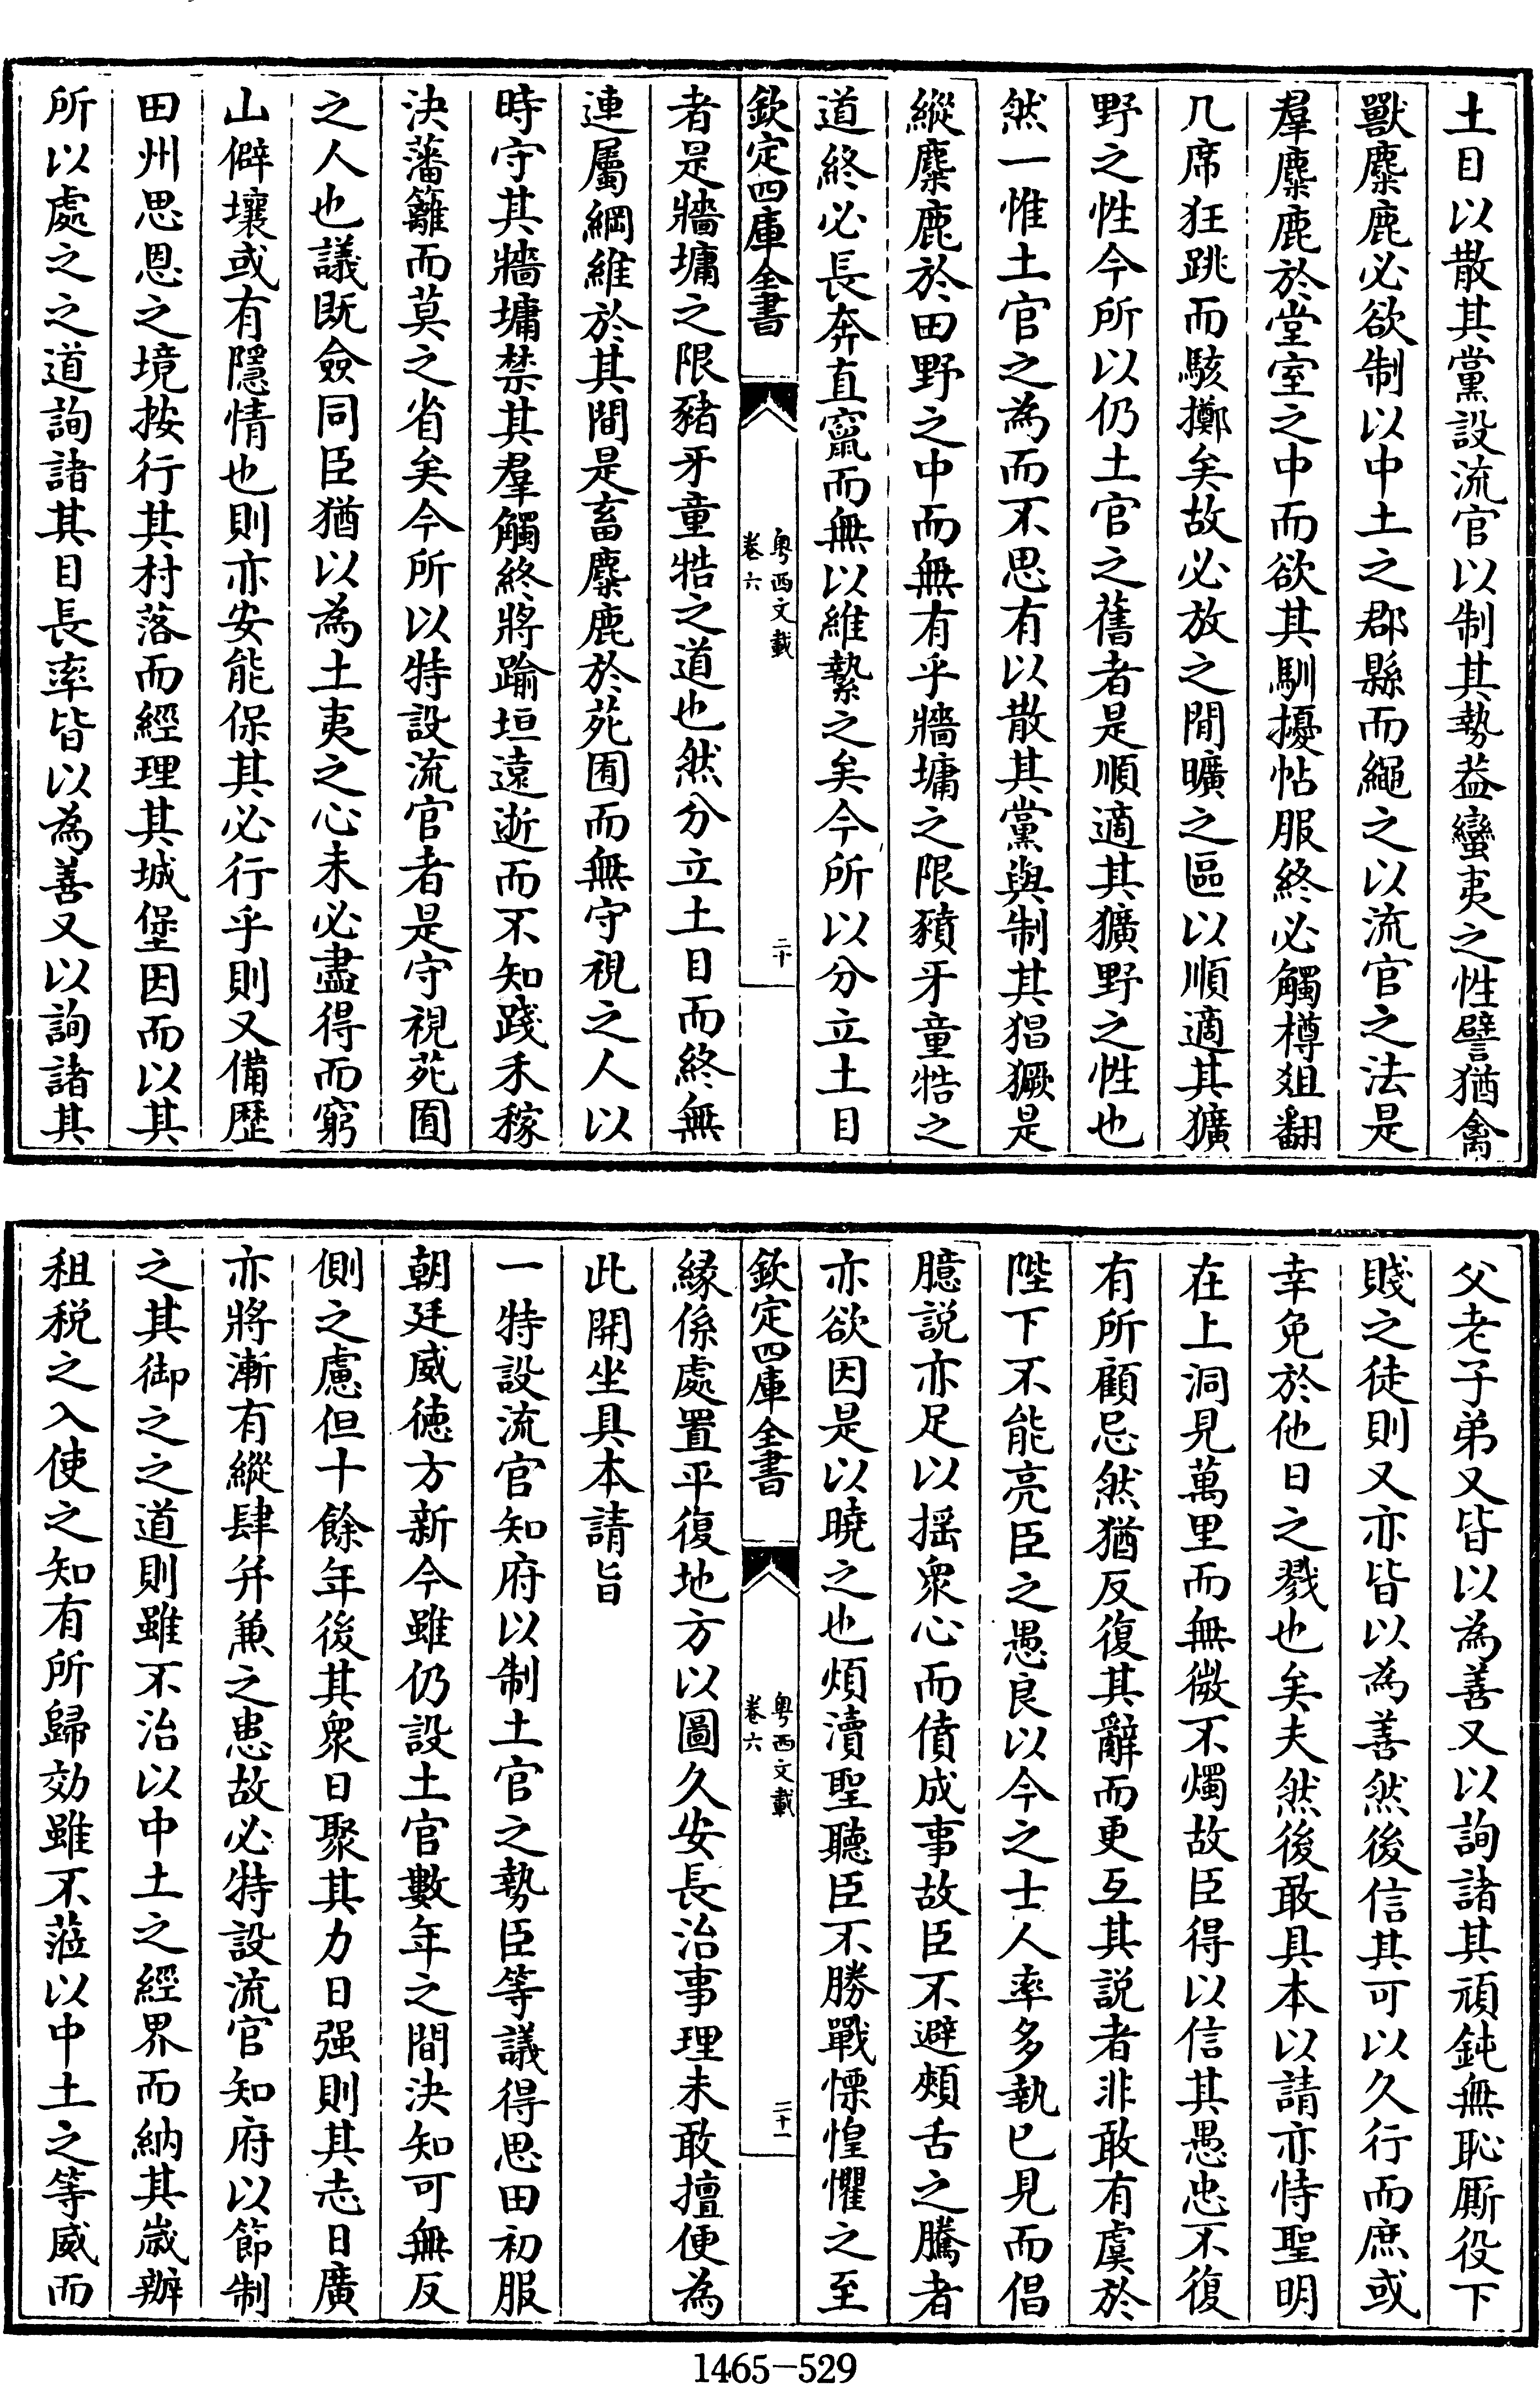 土目以散其黨設流官以制其勢葢蠻夷之性譬猶禽
獸麋鹿必欲制以中土之郡縣而繩之以流官之法是
羣麋鹿於堂室之中而欲其馴擾帖服終必觸樽爼翻
几席狂跳而駭擲矣故必放之閒曠之區以順適其獷
野之性今所以仍土官之舊者是順適其獷野之性也
然一惟土官之為而不思有以散其黨與制其猖獗是
縱麋鹿於田野之中而無有乎牆墉之限豶牙童牿之
道終必長奔直竄而無以維縶之矣今所以分立土目
欽定四庫全書
粤西文載
卷六
二十
者是牆墉之限豬牙童牿之道也然分立土目而終無
連屬綱維於其間是畜麋鹿於苑囿而無守視之人以
時守其牆墉禁其羣觸終將踰垣遠逝而不知踐禾稼
決藩籬而莫之省矣今所以特設流官者是守視苑囿
之人也議既僉同臣猶以為土夷之心未必盡得而窮
山僻壤或有隱情也則亦安能保其必行乎則又備歴
田州思恩之境按行其村落而經理其城堡因而以其
所以處之之道詢諸其目長率皆以為善又以詢諸其
父老子弟又皆以為善又以詢諸其頑鈍無恥厮役下
賤之徒則又亦皆以為善然後信其可以久行而庶或
幸免於他日之戮也矣夫然後敢具本以請亦恃聖明
在上洞見萬里而無微不燭故臣得以信其愚忠不復
有所顧忌然猶反復其辭而更互其説者非敢有虞於
陛下不能亮臣之愚良以今之士人率多執已見而倡
臆説亦足以揺衆心而僨成事故臣不避頰舌之騰者
亦欲因是以曉之也煩瀆聖聽臣不勝戰慄惶懼之至
欽定四庫全書
粤西文載
卷六
二十一
緣係處置平復地方以圖久安長治事理未敢擅便為
此開坐具本請旨
一特設流官知府以制土官之勢臣等議得思田初服
朝廷威徳方新今雖仍設土官數年之間決知可無反
側之慮但十餘年後其衆日聚其力日强則其志日廣
亦將漸有縱肆并兼之患故必特設流官知府以節制
之其御之之道則雖不治以中土之經界而納其嵗辦
租税之入使之知有所歸効雖不蒞以中土之等威而
1465-529